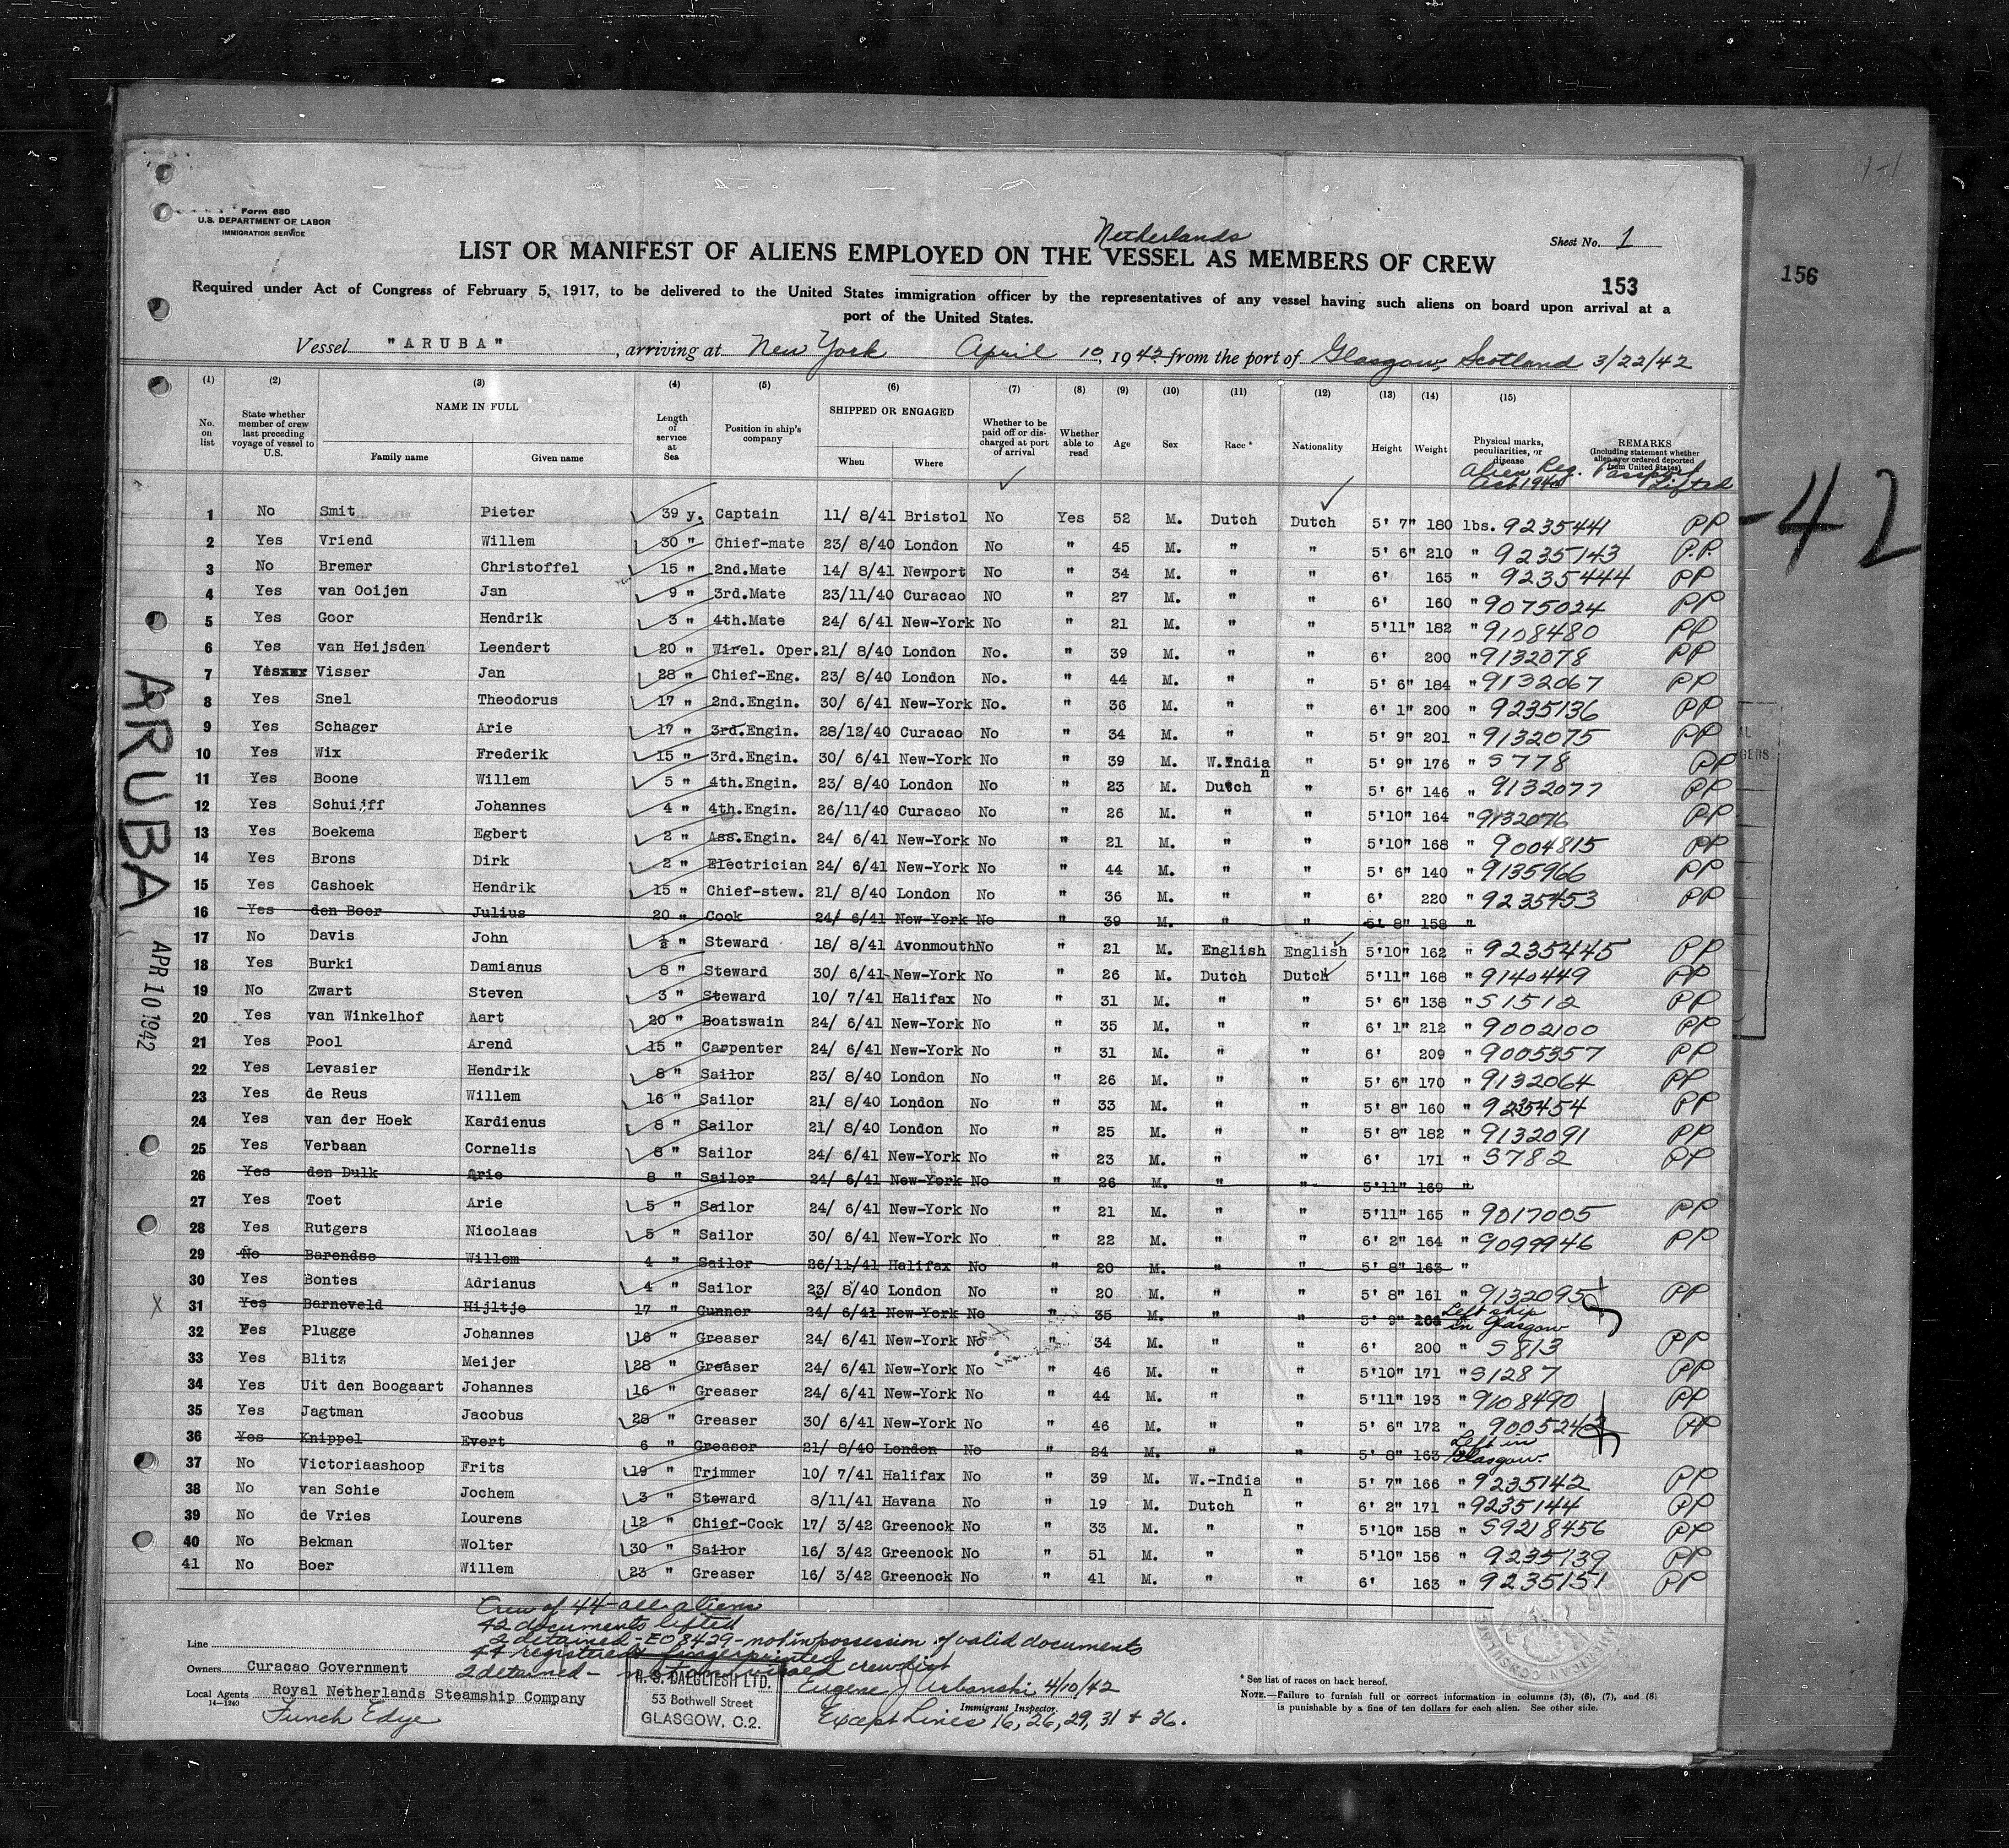 1-1
Form 680
U.S. DEPARTMENT OF LABOR
IMMIGRATION SERVICE
Netherlands
Sheet No. 1
LIST OR MANIFEST OF ALIENS EMPLOYED ON THE VESSEL AS MEMBERS OF CREW
153
156
Required under Act of Congress of February 5, 1917, to be delivered to the United States immigration officer by the representatives of any vessel having such aliens on board upon arrival at a
port of the United States.
Vessel "ARUBA", arriving at New York April 10, 1942 from the port of Glasgow, Scotland 3/22/42
(1) (2) (3) (4) (5) (6) (7) (8) (9) (10) (11) (12) (13) (14) (15)
No. on list State whether member of crew last preceding voyage of vessel to U.S. NAME IN FULL Family name Given name Length of service at Sea Position in ship's company SHIPPED OR ENGAGED When Where Whether to be paid off or discharged at port of arrival Whether able to read Age Sex Race * Nationality Height Weight Physical marks, peculiarities, or disease REMARKS (Including statement whether alien ever ordered deported from United States)
Alien Reg. Act 1940 Passport Lifted
1 No Smit Pieter 39 y. Captain 11/ 8/41 Bristol No Yes 52 M. Dutch Dutch 5' 7" 180 lbs. 9235441 PP
-42
2 Yes Vriend Willem 30 " Chief-mate 23/ 8/40 London No " 45 M. " " 5' 6" 210 " 9235143 P.P.
3 No Bremer Christoffel 15 " 2nd.Mate 14/ 8/41 Newport No " 34 M. " " 6' 165 " 9235444 PP
4 Yes van Ooijen Jan 9 " 3rd.Mate 23/11/40 Curacao NO " 27 M. " " 6' 160 " 9075024 PP
5 Yes Goor Hendrik 3 " 4th.Mate 24/ 6/41 New-York No " 21 M. " " 5'11" 182 " 9108480 PP
6 Yes van Heijsden Leendert 20 " Wirel. Oper. 21/ 8/40 London No. " 39 M. " " 6' 200 " 9132078 PP
7 Yesxxx Visser Jan 28 " Chief-Eng. 23/ 8/40 London No. " 44 M. " " 5' 6" 184 " 9132067 PP
8 Yes Snel Theodorus 17 " 2nd.Engin. 30/ 6/41 New-York No. " 36 M. " " 6' 1" 200 " 9235136 PP
9 Yes Schager Arie 17 " 3rd.Engin. 28/12/40 Curacao No " 34 M. " " 5' 9" 201 " 9132075 PP
10 Yes Wix Frederik 15 " 3rd.Engin. 30/ 6/41 New-York No " 39 M. W.Indian " 5' 9" 176 " S778 PP
11 Yes Boone Willem 5 " 4th.Engin. 23/ 8/40 London No " 23 M. Dutch " 5' 6" 146 " 9132077 PP
12 Yes Schuijff Johannes 4 " 4th.Engin. 26/11/40 Curacao No " 26 M. " " 5'10" 164 " 9132076 PP
13 Yes Boekema Egbert 2 " Ass.Engin. 24/ 6/41 New-York No " 21 M. " " 5'10" 168 " 9004815 PP
14 Yes Brons Dirk 2 " Electrician 24/ 6/41 New-York No " 44 M. " " 5' 6" 140 " 9135966 PP
15 Yes Cashoek Hendrik 15 " Chief-stew. 21/ 8/40 London No " 36 M. " " 6' 220 " 9235453 PP
16 Yes den Boer Julius 20 " Cook 24/ 6/41 New-York No " 39 M. " " 5' 8" 158 "
17 No Davis John ½ " Steward 18/ 8/41 Avonmouth No " 21 M. English English 5'10" 162 " 9235445 PP
18 Yes Burki Damianus 8 " Steward 30/ 6/41 New-York No " 26 M. Dutch Dutch 5'11" 168 " 9140449 PP
19 No Zwart Steven 3 " Steward 10/ 7/41 Halifax No " 31 M. " " 5' 6" 138 " S1512 PP
20 Yes van Winkelhof Aart 20 " Boatswain 24/ 6/41 New-York No " 35 M. " " 6' 1" 212 " 9002100 PP
21 Yes Pool Arend 15 " Carpenter 24/ 6/41 New-York No " 31 M. " " 6' 209 " 9005357 PP
22 Yes Levasier Hendrik 8 " Sailor 23/ 8/40 London No " 26 M. " " 5' 6" 170 " 9132064 PP
23 Yes de Reus Willem 16 " Sailor 21/ 8/40 London No " 33 M. " " 5' 8" 160 " 9235454 PP
24 Yes van der Hoek Kardienus 8 " Sailor 21/ 8/40 London No " 25 M. " " 5' 8" 182 " 9132091 PP
25 Yes Verbaan Cornelis 8 " Sailor 24/ 6/41 New-York No " 23 M. " " 6' 171 " S782 PP
26 Yes den Dulk Arie 8 " Sailor 24/ 6/41 New-York No " 26 M. " " 5'11" 169 "
27 Yes Toet Arie 5 " Sailor 24/ 6/41 New-York No " 21 M. " " 5'11" 165 " 9017005 PP
28 Yes Rutgers Nicolaas 5 " Sailor 30/ 6/41 New-York No " 22 M. " " 6' 2" 164 " 9099946 PP
29 No Barendse Willem 4 " Sailor 26/11/41 Halifax No " 20 M. " " 5' 8" 163 "
30 Yes Bontes Adrianus 4 " Sailor 23/ 8/40 London No " 20 M. " " 5' 8" 161 " 9132095 PP
X 31 Yes Barneveld Hijltje 17 " Gunner 24/ 6/41 New-York No " 35 M. " " 5' 9" Left ship in Glasgow
32 Yes Plugge Johannes 16 " Greaser 24/ 6/41 New-York No " 34 M. " " 6' 200 " S813 PP
33 Yes Blitz Meijer 28 " Greaser 24/ 6/41 New-York No " 46 M. " " 5'10" 171 " S1287 PP
34 Yes Uit den Boogaart Johannes 16 " Greaser 24/ 6/41 New-York No " 44 M. " " 5'11" 193 " 9108490 PP
35 Yes Jagtman Jacobus 28 " Greaser 30/ 6/41 New-York No " 46 M. " " 5' 6" 172 " PP
36 Yes Knippel Evert 6 " Greaser 21/ 8/40 London No " 24 M. " " 5' 8" 163 Left in Glasgow
37 No Victoriaashoop Frits 19 " Trimmer 10/ 7/41 Halifax No " 39 M. W.-Indian " 5' 7" 166 " 9235142 PP
38 No van Schie Jochem 3 " Steward 8/11/41 Havana No " 19 M. Dutch " 6' 2" 171 " 9235144 PP
39 No de Vries Lourens 12 " Chief-Cook 17/ 3/42 Greenock No " 33 M. " " 5'10" 158 " S9218456 PP
40 No Bekman Wolter 30 " Sailor 16/ 3/42 Greenock No " 51 M. " " 5'10" 156 " 9235139 PP
41 No Boer Willem 23 " Greaser 16/ 3/42 Greenock No " 41 M. " " 6' 163 " 9235151 PP
ARUBA
APR 10 1942
Crew of 44 - all aliens
42 documents lifted
2 detained - EO 8429 - not in possession of valid documents
44 registered & fingerprinted
2 detained - visaed crew list
Line
Owners Curacao Government
Local Agents Royal Netherlands Steamship Company
14-1240
Funch Edye
R. S. DALGLIESH LTD.
53 Bothwell Street
GLASGOW, C.2.
Eugene J Urbanski 4/10/42
Immigrant Inspector.
Except Lines 16, 26, 29, 31 + 36.
* See list of races on back hereof.
NOTE.—Failure to furnish full or correct information in columns (3), (6), (7), and (8)
is punishable by a fine of ten dollars for each alien. See other side.
AMERICAN CONSULATE